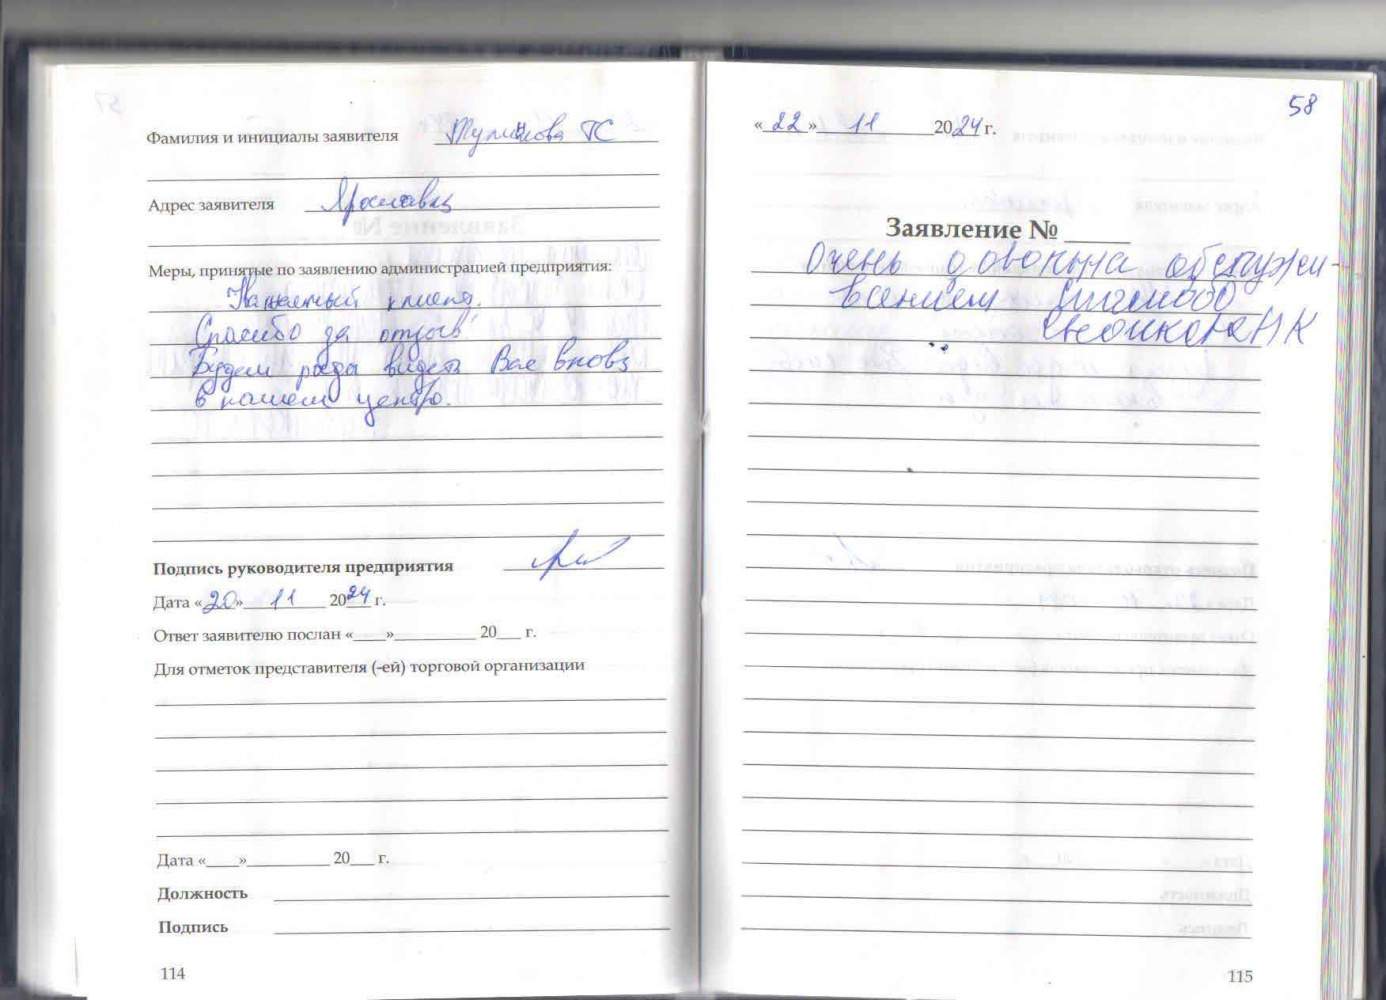 Фамилия и инициалы заявителя ГС
Адрес заявителя Ярославль
Меры, принятые по заявлению администрацией предприятия:
Уважаемый клиент.
Спасибо за отзыв!
Будем рады видеть Вас вновь
в нашем центре.
Подпись руководителя предприятия
Дата «20» 11 2024 г.
Ответ заявителю послан «____»__________ 20___ г.
Для отметок представителя (-ей) торговой организации
Дата «____»__________ 20___ г.
Должность
Подпись
114
58
«22» 11 2024 г.
Заявление № _____
Очень довольна обслужи-
ванием Спасибо
115